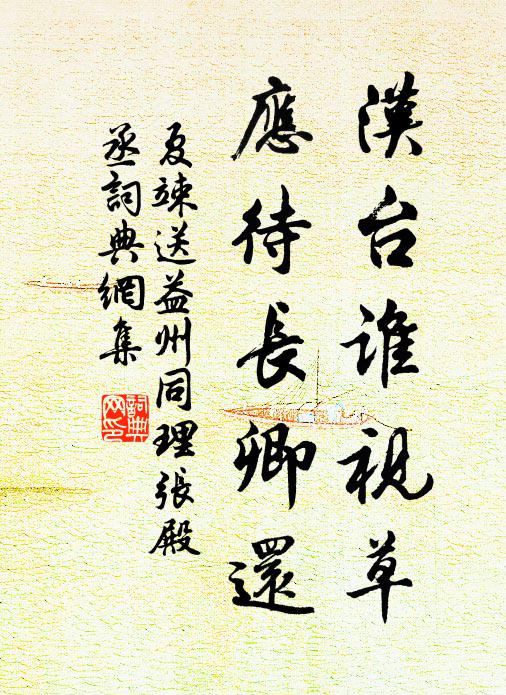 漢台誰視草
應待長卿還
夏竦送益州同理張殿
丞詞典網集
詞典
网印